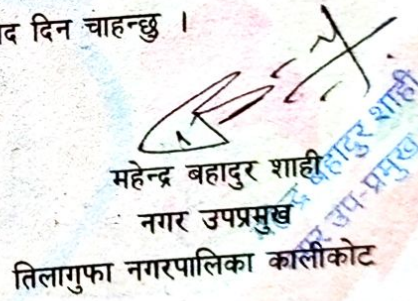 दिन चाहन्छु ।
महेन्द्र बहादुर शाही
नगर उपप्रमुख
तिलागुफा नगरपालिका कालीकोट
बहादुर शाही
उप-प्रमुख